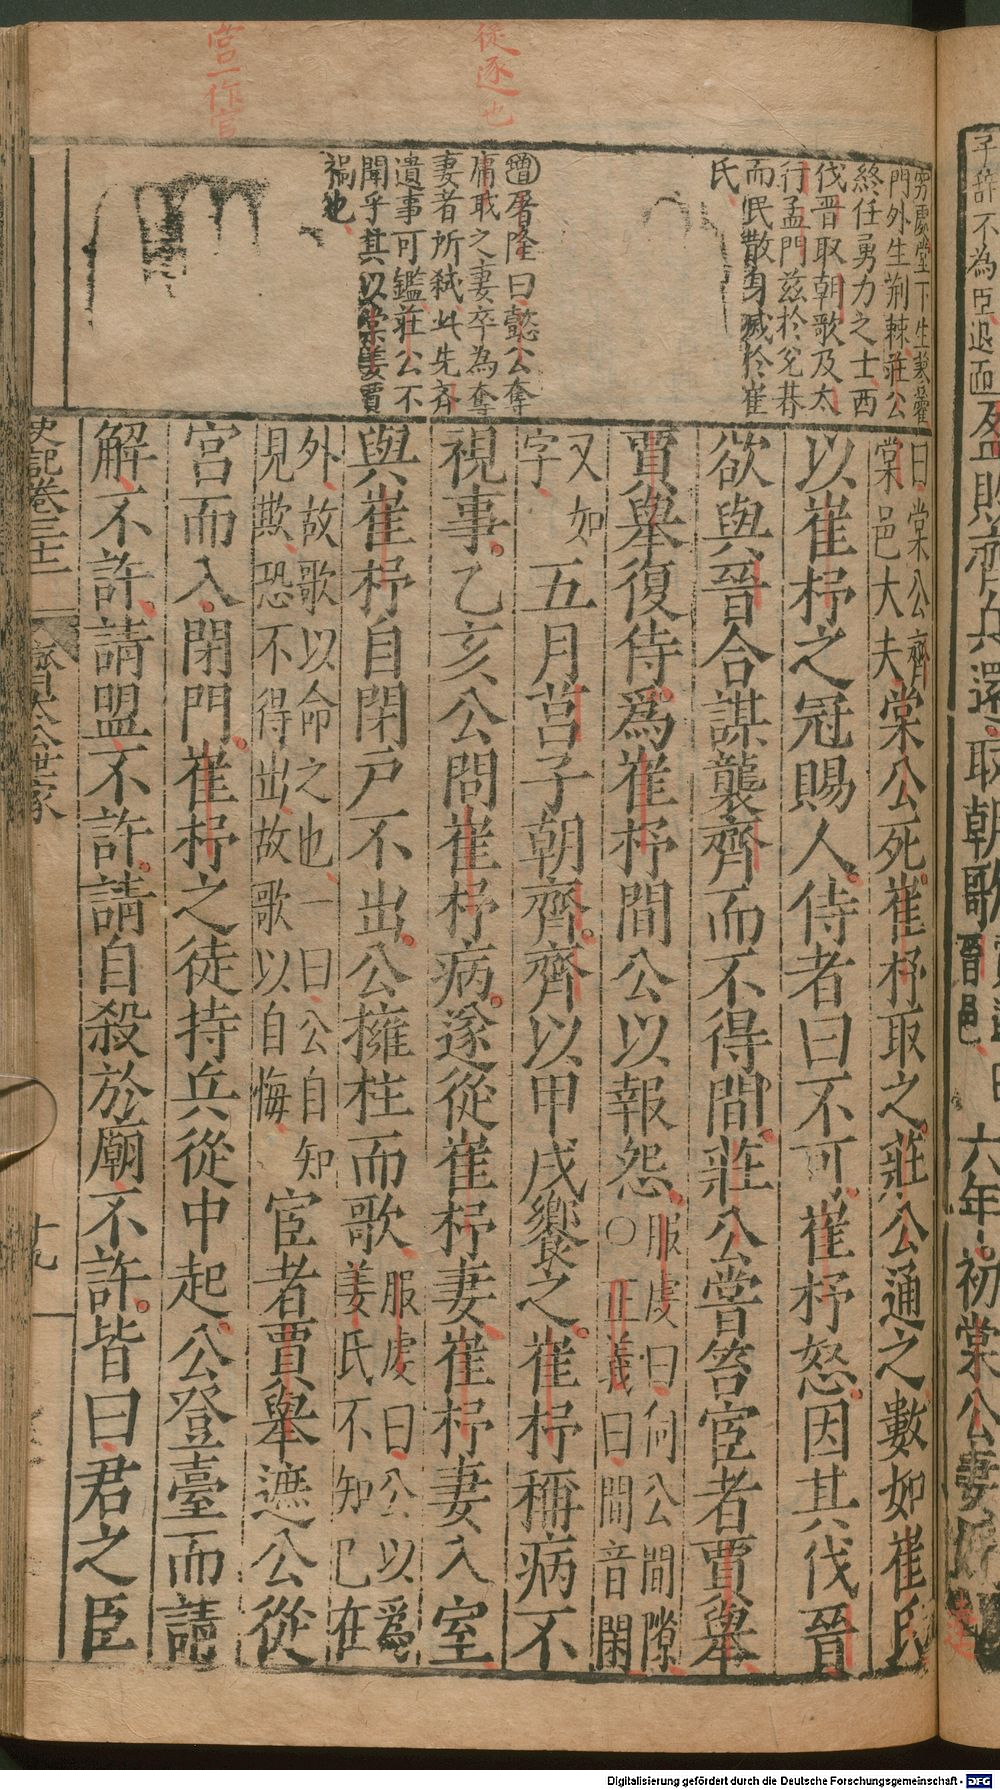 從逐也
宮一作官
雱處堂下生蓼藿
門外生荊棘莊公
終任勇力之士西
伐晉取朝歌及太
行孟門茲於兌朞
而民散身滅於崔
氏
增屠隆曰懿公奪
庸戢之妻卒為奪
妻者所弒此先齊
遺事可鑑莊公不
聞乎其以棠姜賈
禍也
子辭不為臣退而盈敗齊兵還取朝歌
晉邑
六年初棠公妻
曰棠公齊
棠邑大夫
棠公死崔杼取之莊公通之數如崔氏
以崔杼之冠賜人侍者曰不可崔杼怒因其伐晉
欲與晉合謀襲齊而不得間莊公嘗笞宦者賈舉
賈舉復侍為崔杼間公以報怨
服虔曰伺公間隙
〇正義曰間音閑
又如
字
五月莒子朝齊齊以甲戌饗之崔杼稱病不
視事乙亥公問崔杼病遂從崔杼妻崔杼妻入室
與崔杼自閉戶不出公擁柱而歌
服虔曰公以為
姜氏不知己在
外故歌以命之也一曰公自知
見欺恐不得出故歌以自悔
宦者賈舉遮公從
宮而入閉門崔杼之徒持兵從中起公登臺而請
解不許請盟不許請自殺於廟不許皆曰君之臣
史記卷三十二
齊太公世家
十九
Digitalisierung gefördert durch die Deutsche Forschungsgemeinschaft - DFG